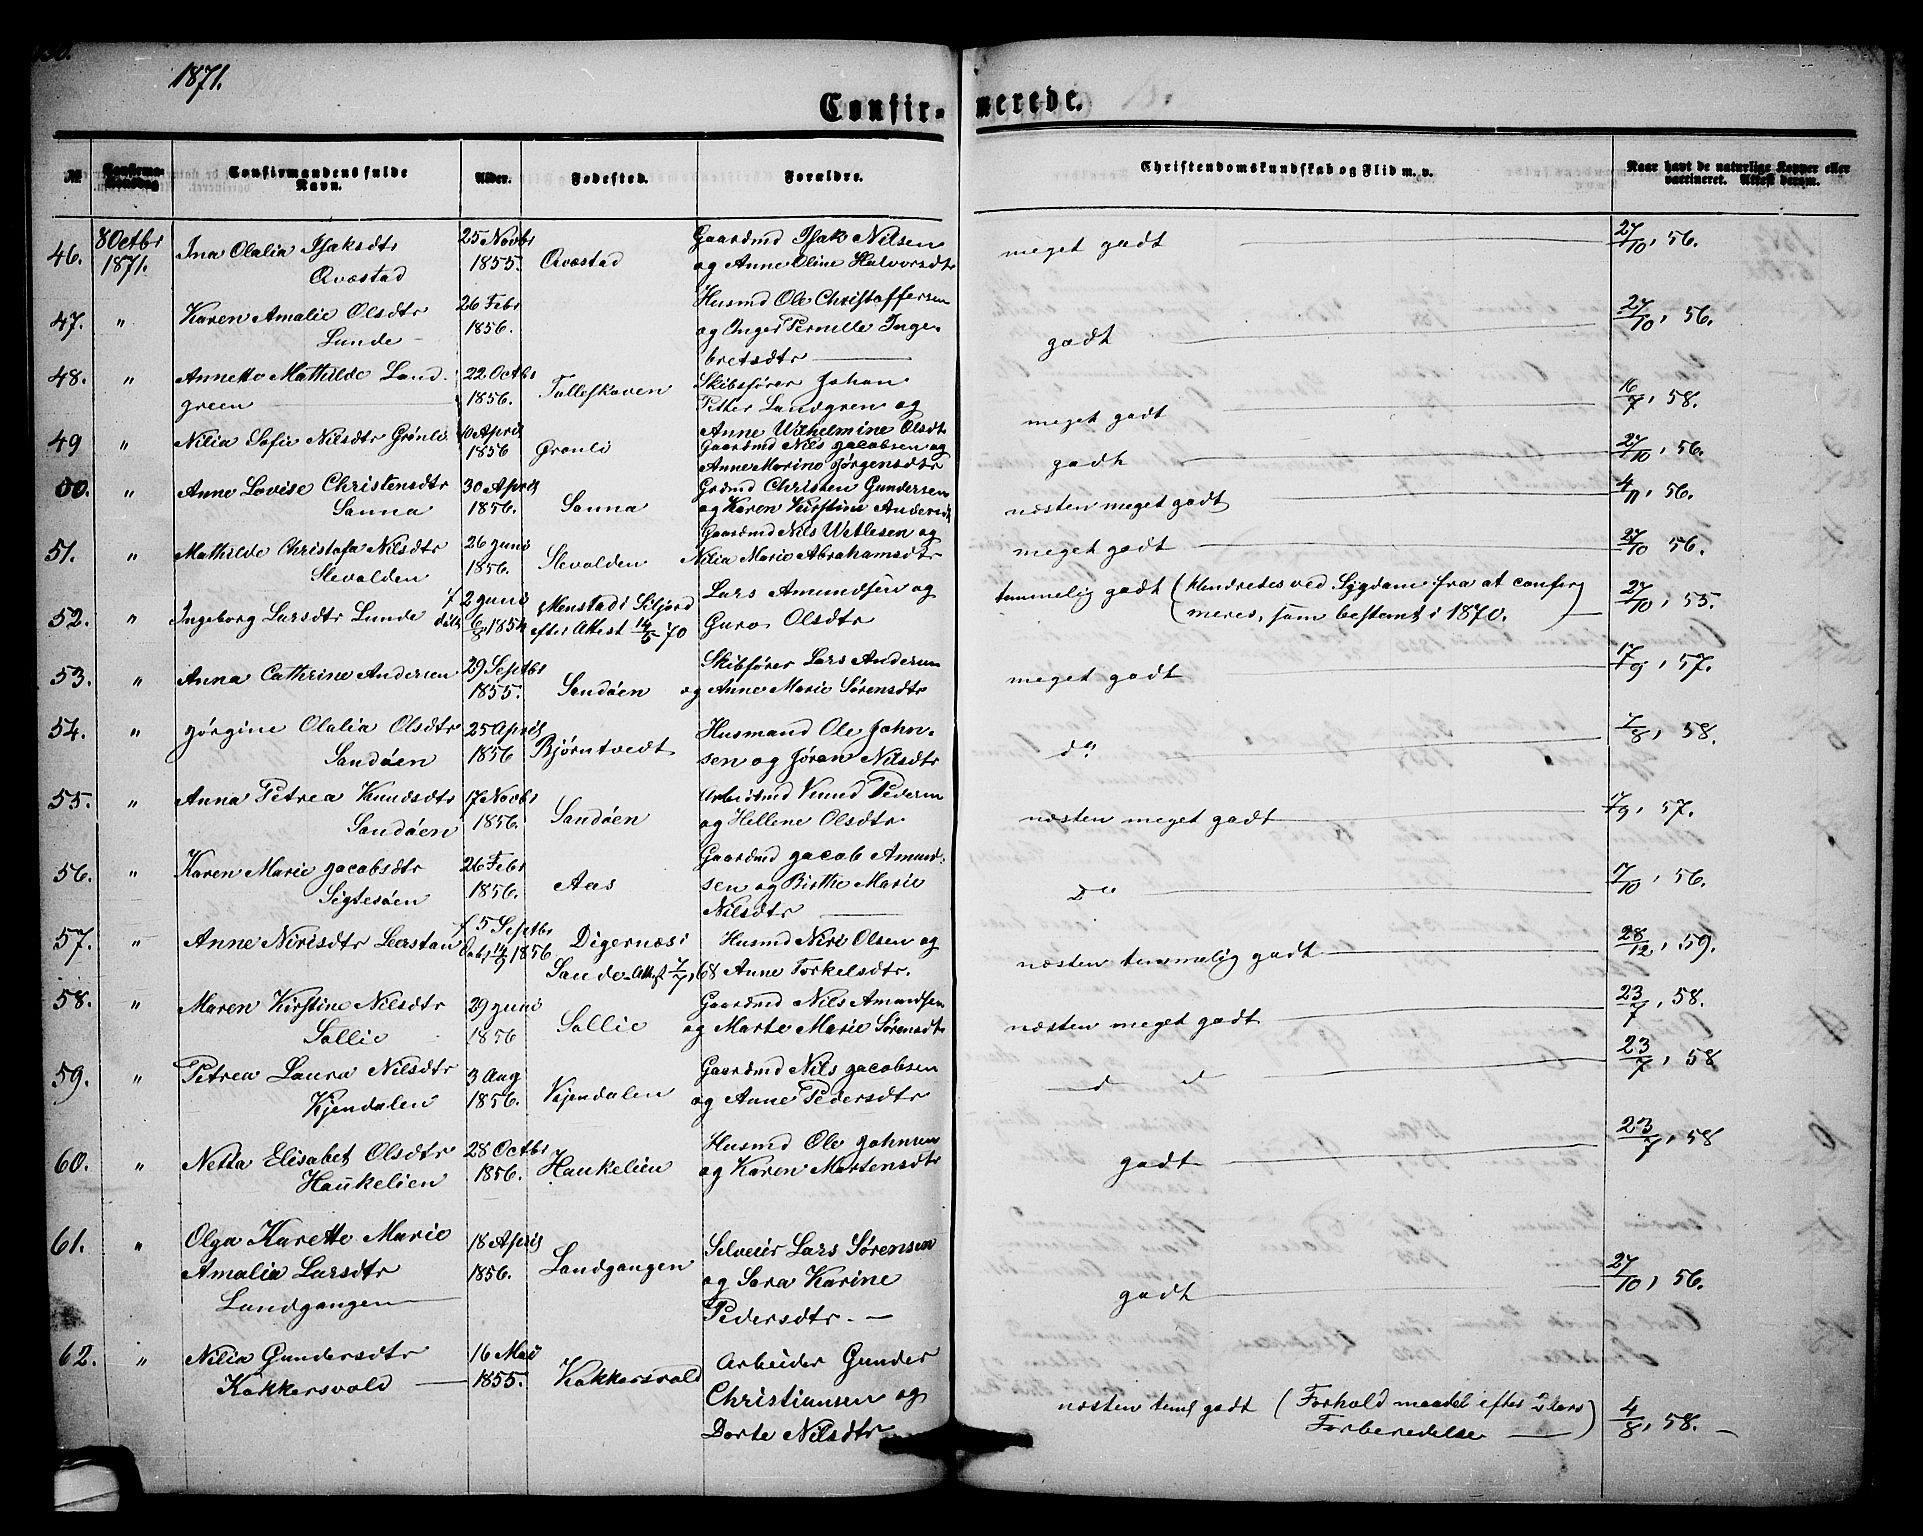 1871.
Confirmerede.
№ Confirmationsdag Confirmandens fulde Navn. Alder. Fødested. Forældre. Christendomskundskab og Flid m. v. Naar havt de naturlige Kopper eller vaccineret. Attest derom.
46. 8 Octbr Ina Olalia Isaksdtr 25 Novbr Gaardmd Isak Nilsen meget godt 27/10, 56.
1871. Qvæstad 1855. Qvæstad og Anne Oline Halvorsdtr
47. " Karen Amalie Olsdtr 26 Febr Husmd Ole Christoffersen godt 27/10, 56.
Lunde 1856. og Inger Pernille Inge-
bretsdtr
48. " Annette Mathilde Land- 22 Octbr Skibsfører Johan meget godt 16/7, 58.
green 1856. Tallefskaven Petter Landgren og
Anne Wilhelmine Olsdtr
49 " Nilia Sofie Nilsdtr Grønli 10 April Gaardmd Nils Jacobsen og godt 27/10, 56.
1856 Grønli Anne Marine Jørgensdtr
50. " Anne Lovise Christensdtr 30 April Grdmd Christen Gundersen næsten meget godt 4/11, 56.
Sanna 1856. Sanna og Karen Kirstine Andersdt
51. " Mathilde Christofa Nilsdtr 26 Juni Gaardmd Nils Wetlesen og meget godt 27/10 56.
Slevolden 1856. Slevolden Nilia Marie Abrahamsdtr
52. " Ingeborg Larsdtr Lunde f 2 Juni Menstad i Siljord Lars Amundsen og temmelig godt (hindredes ved Sygdom fra at confir- 27/10, 55.
døbt 6/8, 1854 efter Attest 14/5 70 Guro Olsdtr meres, som bestemt i 1870.)
53. " Anna Cathrine Andersen 29 Septbr Skibfører Lars Andersen meget godt 17/9, 57.
1855. Sandøen og Anne Marie Sørensdtr
54. " Jørgine Olalia Olsdtr 25 April Husmand Ole John- do 7/8, 58.
Sandøen 1856 Bjørntvedt sen og Jøran Nilsdtr
55. " Anna Petrea Knudsdtr 17 Novbr Arbeidsmd Knud Pedersen næsten meget godt 17/9, 57.
Sandøen 1856. Sandøen og Hellene Olsdtr
56. " Karen Marie Jacobsdtr 26 Febr Gaardmd Jacob Amund- Do 7/10, 56.
Sigtesøen 1856. Aas sen og Birthe Marie
Nilsdtr
57. " Anne Nirisdtr Leerstan f 5 Septbr Digernæs i Husmd Niri Olsen og næsten temmelig godt 28/12, 59.
Døbt 14/9 1856 Sande Attest 7/7, 68 Anne Torkelsdtr.
58. " Maren Kirstine Nilsdtr 29 Juni Gaardmd Nils Amundsen næsten meget godt 23/7, 58.
Sollie 1856 Sollie og Marte Marie Sørensdtr
59. " Petrea Laura Nilsdtr 3 Aug Gaardmd Nils Jacobsen d d 23/7, 58
Kjendalen 1856. Kjendalen og Anne Pedersdtr
60. " Netta Elisabet Olsdtr 28 Octbr Husmd Ole Johnsen godt 23/7, 58
Haukelien 1856. Haukelien og Karen Mortensdtr
61. " Olga Karette Marie 18 April Selveier Lars Sørensen godt 27/10, 56.
Amalia Larsdtr 1856. Landgangen og Sara Karine
Landgangen Pedersdtr.
62. " Nilia Gundersdtr 16 Mai Arbeider Gunder næsten teml godt (Forhold maadel. efter 2 Aars 4/8, 58.
Kokkersvold 1855. Kokkersvold Christiansen og Forberedelse)
Dorte Nilsdtr